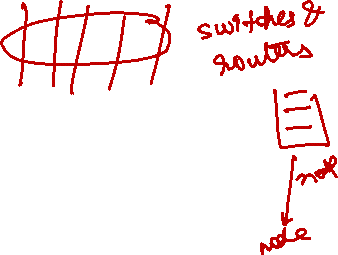 switches &
routers
not
node